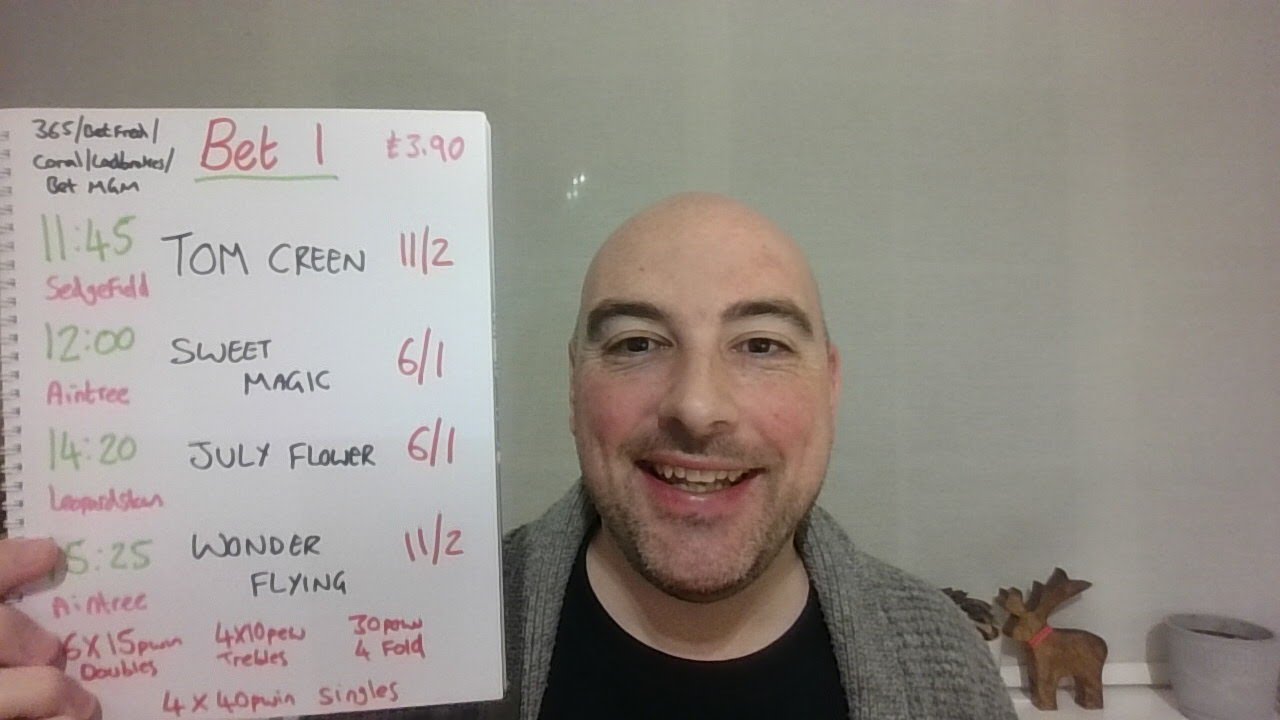 365/BetFred/
Coral/Ladbrokes/
Bet MGM
Bet 1
£3.90
11:45 TOM CREEN 11/2
Sedgefield
12:00 SWEET
MAGIC 6/1
Aintree
14:20 JULY FLOWER 6/1
Leopardstown
5:25 WONDER
FLYING 11/2
Aintree
6X15pwin 4X10pew 30pew
Doubles Trebles 4 Fold
4X40pwin Singles